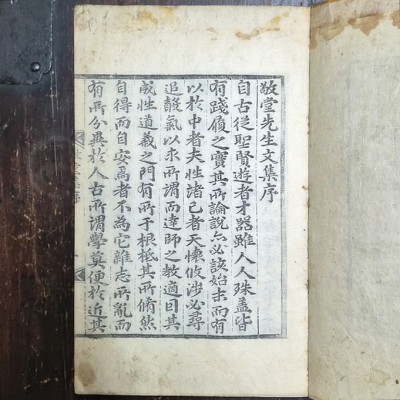 敬堂先生文集序
自古從聖賢遊者才器雖人人殊盖皆
有踐履之實其所論說亦必該始末而有
以於中者夫性諸己者天懷攸涉必尋
追馨氣以求所謂而達師之教適曰其
成性道義之門有所于根柢其所脩然
自得而自安高者不為它雜志所亂而
有所分異於人古所謂學莫便於近其